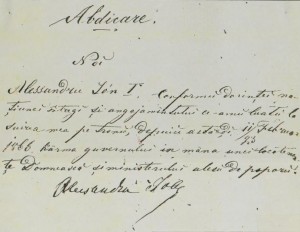 Abdicare.
Noi
Alessandru Ión I° conformu dorinței na-
țiunei intregi și angajamentului ce amu luatu la
suirea mea pe Tronu, depuiu astadi 11/23 Februar
1866 kârma guvernului in mâna unei locotenen-
țe Domnească și ministerului alesu de poporu.
Alessandru Ión